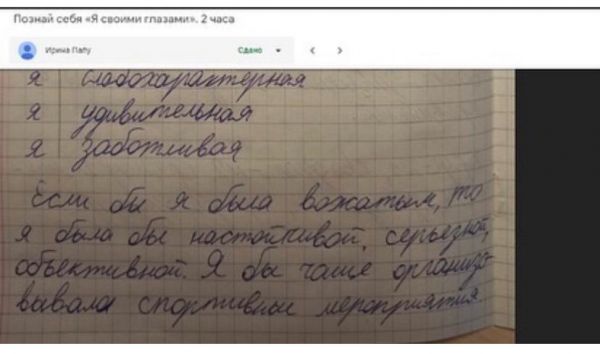 Познай себя «Я своими глазами». 2 часа
Ирина Папу
Сдано
я слабохарактерная
я удивительная
я заботливая
Если бы я была вожатым, то
я была бы настойчивой, серьезной,
объективной. Я бы чаще организо-
вывала спортивные мероприятия.